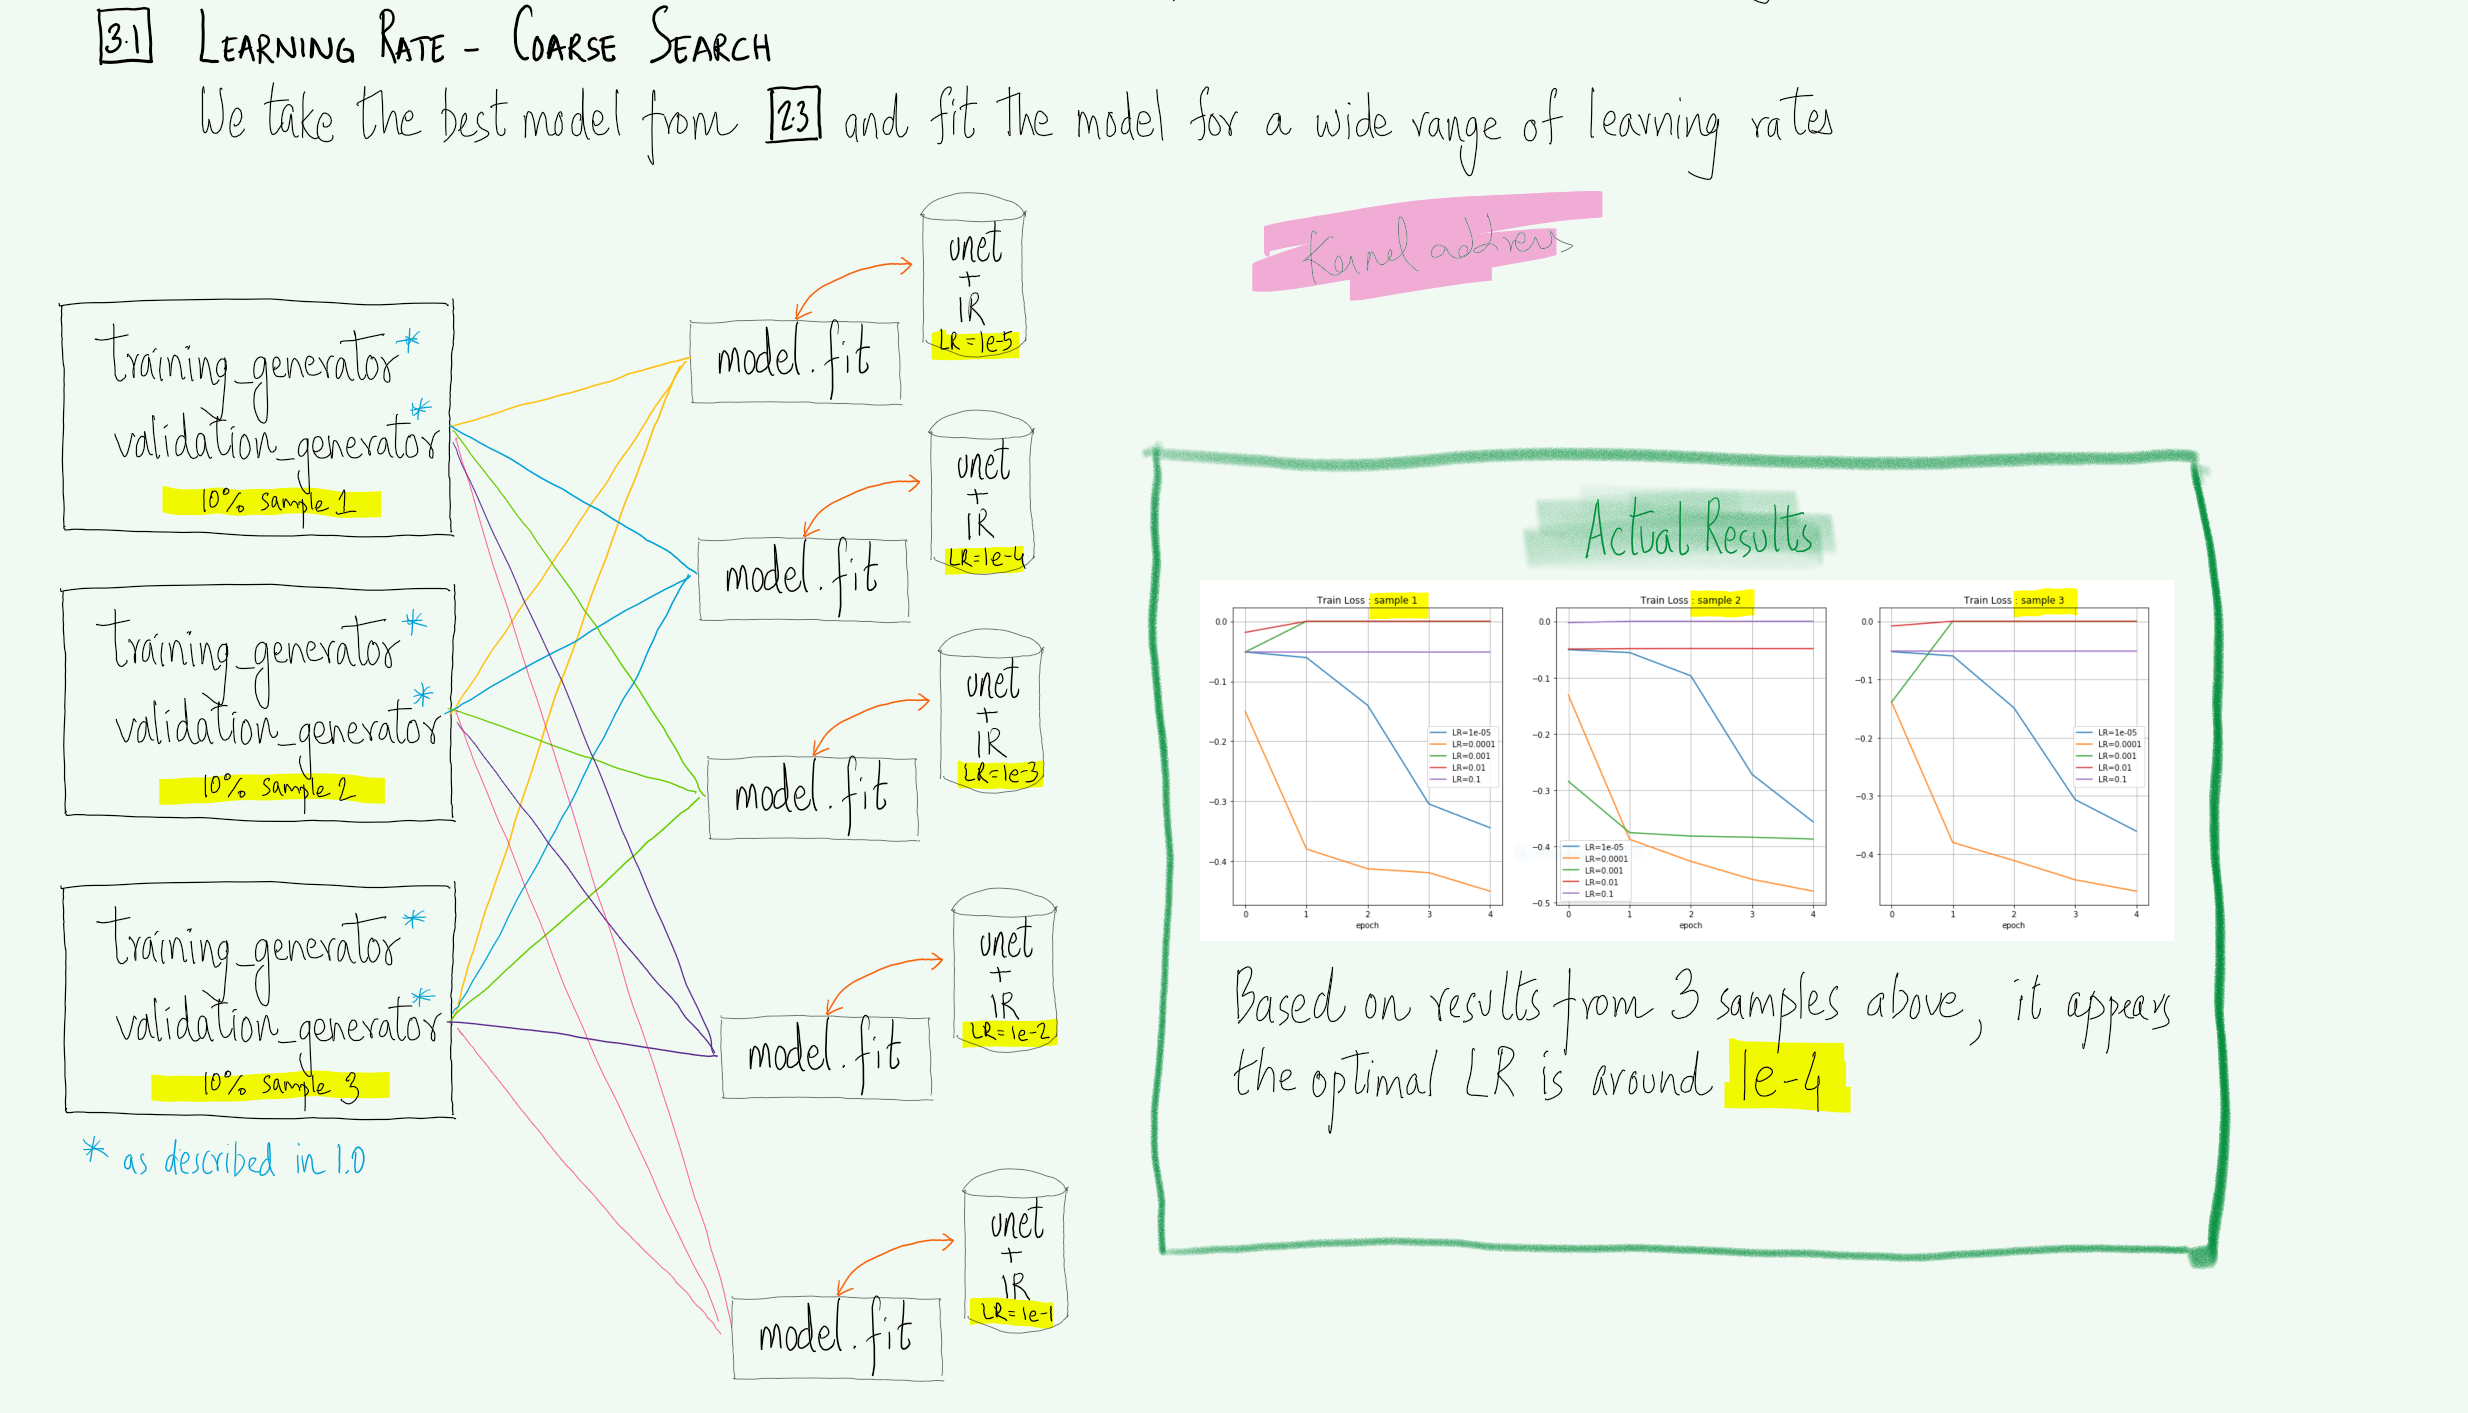 3.1 LEARNING RATE - COARSE SEARCH
We take the best model from 2.3 and fit the model for a wide range of learning rates
Kernel address
training_generator*
validation_generator*
10% sample 1
training_generator*
validation_generator*
10% sample 2
training_generator*
validation_generator*
10% sample 3
* as described in 1.0
model.fit
unet
+
IR
LR=1e-5
model.fit
unet
+
IR
LR=1e-4
model.fit
unet
+
IR
LR=1e-3
model.fit
unet
+
IR
LR=1e-2
model.fit
unet
+
IR
LR=1e-1
Actual Results
Train Loss : sample 1
0.0
−0.1
−0.2
−0.3
−0.4
LR=1e-05
LR=0.0001
LR=0.001
LR=0.01
LR=0.1
0 1 2 3 4
epoch
Train Loss : sample 2
0.0
−0.1
−0.2
−0.3
−0.4
−0.5
LR=1e-05
LR=0.0001
LR=0.001
LR=0.01
LR=0.1
0 1 2 3 4
epoch
Train Loss : sample 3
0.0
−0.1
−0.2
−0.3
−0.4
LR=1e-05
LR=0.0001
LR=0.001
LR=0.01
LR=0.1
0 1 2 3 4
epoch
Based on results from 3 samples above, it appears
the optimal LR is around 1e-4